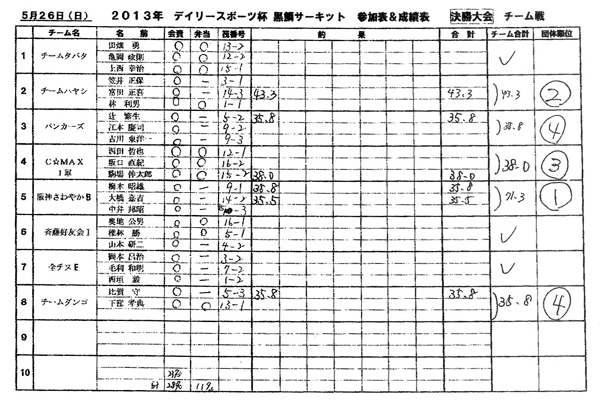 5月26日（日） 2013年 デイリースポーツ杯 黒鯛サーキット 参加表＆成績表 決勝大会 チーム戦
チーム名 名前 会費 弁当 筏番号 釣果 合計 チーム合計 団体順位
1 チームタバタ 田畑 勇 ○ ○ 13-2
亀岡 ○ ○ 12-2
上西 幸治 ○ ○ 15-1
2 チームハヤシ 笠井 正保 ○ ー 3-1
富田 正喜 ○ ー 14-3 43.3 43.3 43.3 ②
林 利男 ○ ○ 1-1
3 バンカーズ 辻 繁生 ○ ー 5-2 35.8 35.8
江本 慶司 ○ ー 9-2 35.8 ④
古川 東洋一 ○ ー 9-3
4 C☆MAX I冠 西田 哲也 ○ ○ 12-1
阪口 直紀 ○ ○ 16-2 38.0 ③
駒場 伸太郎 ○ ○ 15-2 38.0 38.0
5 阪神さわやかB 橋本 昭雄 ○ ー 9-1 35.8 35.8
大橋 嘉吉 ○ ー 14-2 35.5 35.5 71.3 ①
中井 邦昭 ○ ー -3
6 斉藤好友会I 奥地 公男 ○ ー 16-1
勝 ○ ○ 5-1
山本 研二 ○ ー 4-2
7 全チヌE 岡本 昌治 ○ ー 3-2
毛利 和明 ○ ー 7-2
西垣 毅 ○ ー 1-2
8 チームダンゴ 比賀 守 ○ ー 5-3 35.8 35.8
下窪 孝典 ○ ○ 13-1 35.8 ④
9
10
計 11